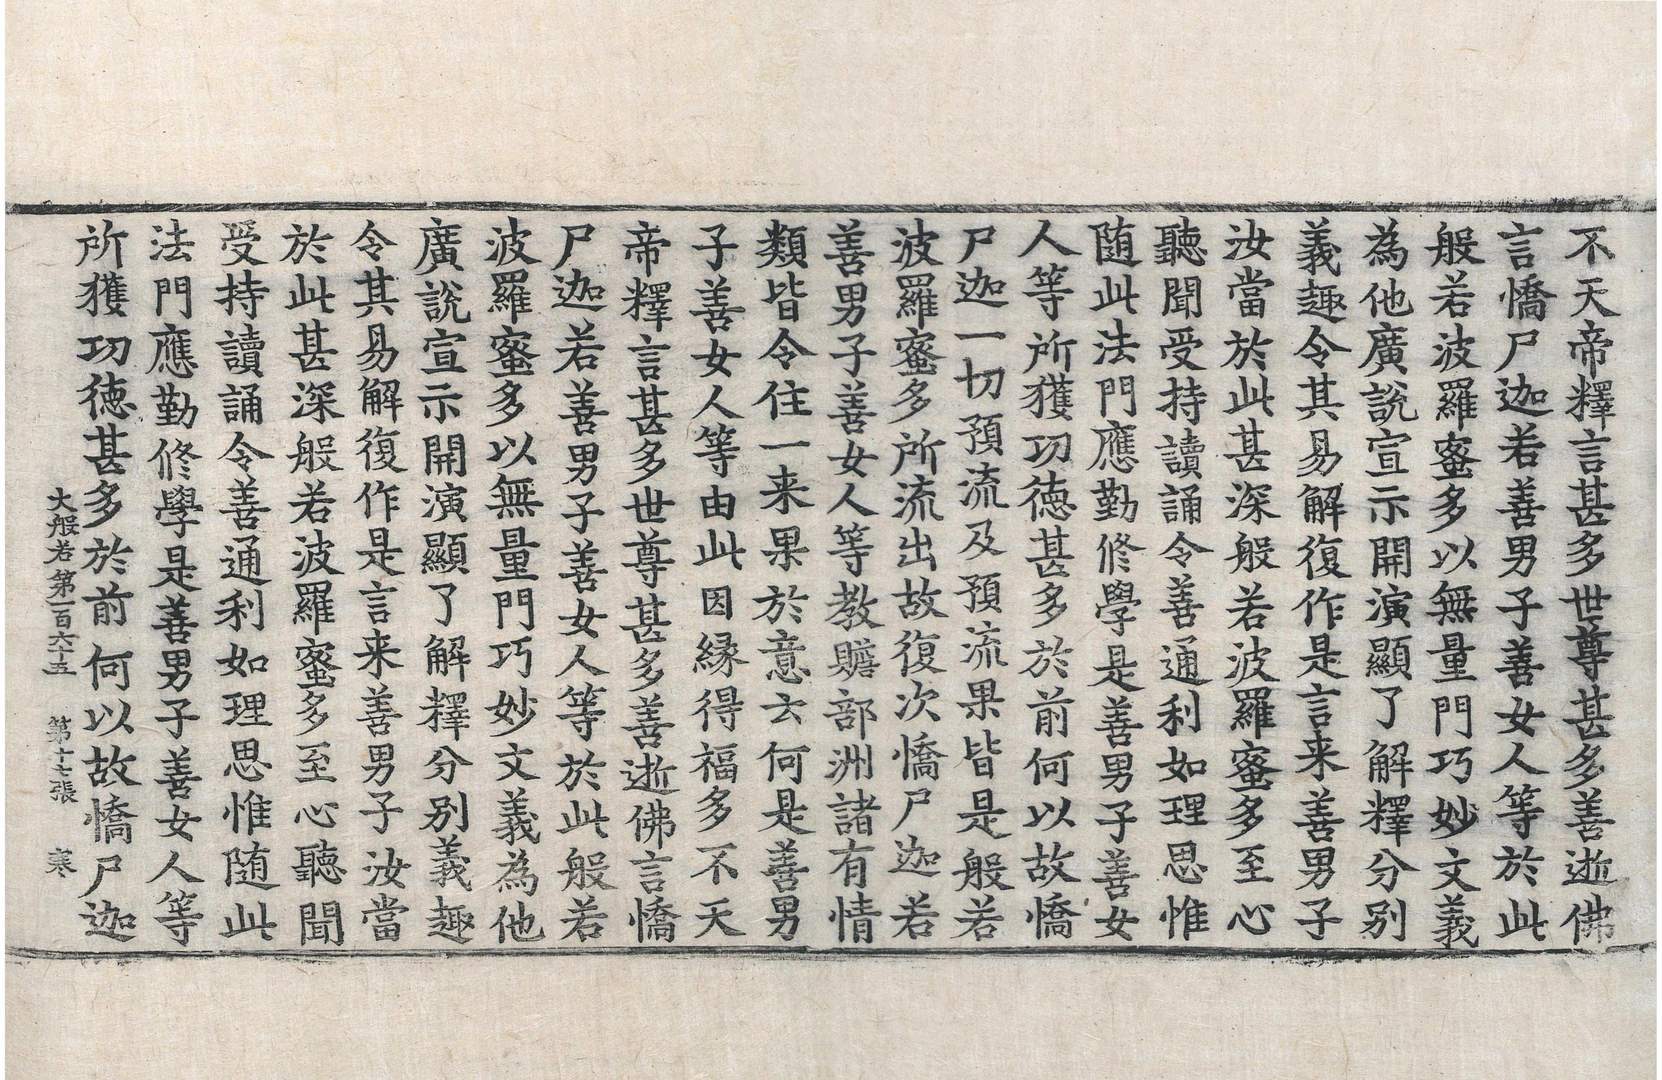 不天帝釋言甚多世尊甚多善逝佛
言憍尸迦若善男子善女人等於此
般若波羅蜜多以無量門巧妙文義
為他廣說宣示開演顯了解釋分別
義趣令其易解復作是言来善男子
汝當於此甚深般若波羅蜜多至心
聽聞受持讀誦令善通利如理思惟
随此法門應勤修學是善男子善女
人等所獲功德甚多於前何以故憍
尸迦一切預流及預流果皆是般若
波羅蜜多所流出故復次憍尸迦若
善男子善女人等教贍部洲諸有情
類皆令住一来果於意云何是善男
子善女人等由此因緣得福多不天
帝釋言甚多世尊甚多善逝佛言憍
尸迦若善男子善女人等於此般若
波羅蜜多以無量門巧妙文義為他
廣說宣示開演顯了解釋分別義趣
令其易解復作是言来善男子汝當
於此甚深般若波羅蜜多至心聽聞
受持讀誦令善通利如理思惟随此
法門應勤修學是善男子善女人等
所獲功德甚多於前何以故憍尸迦
大般若第一百六十五 第十七張 寒